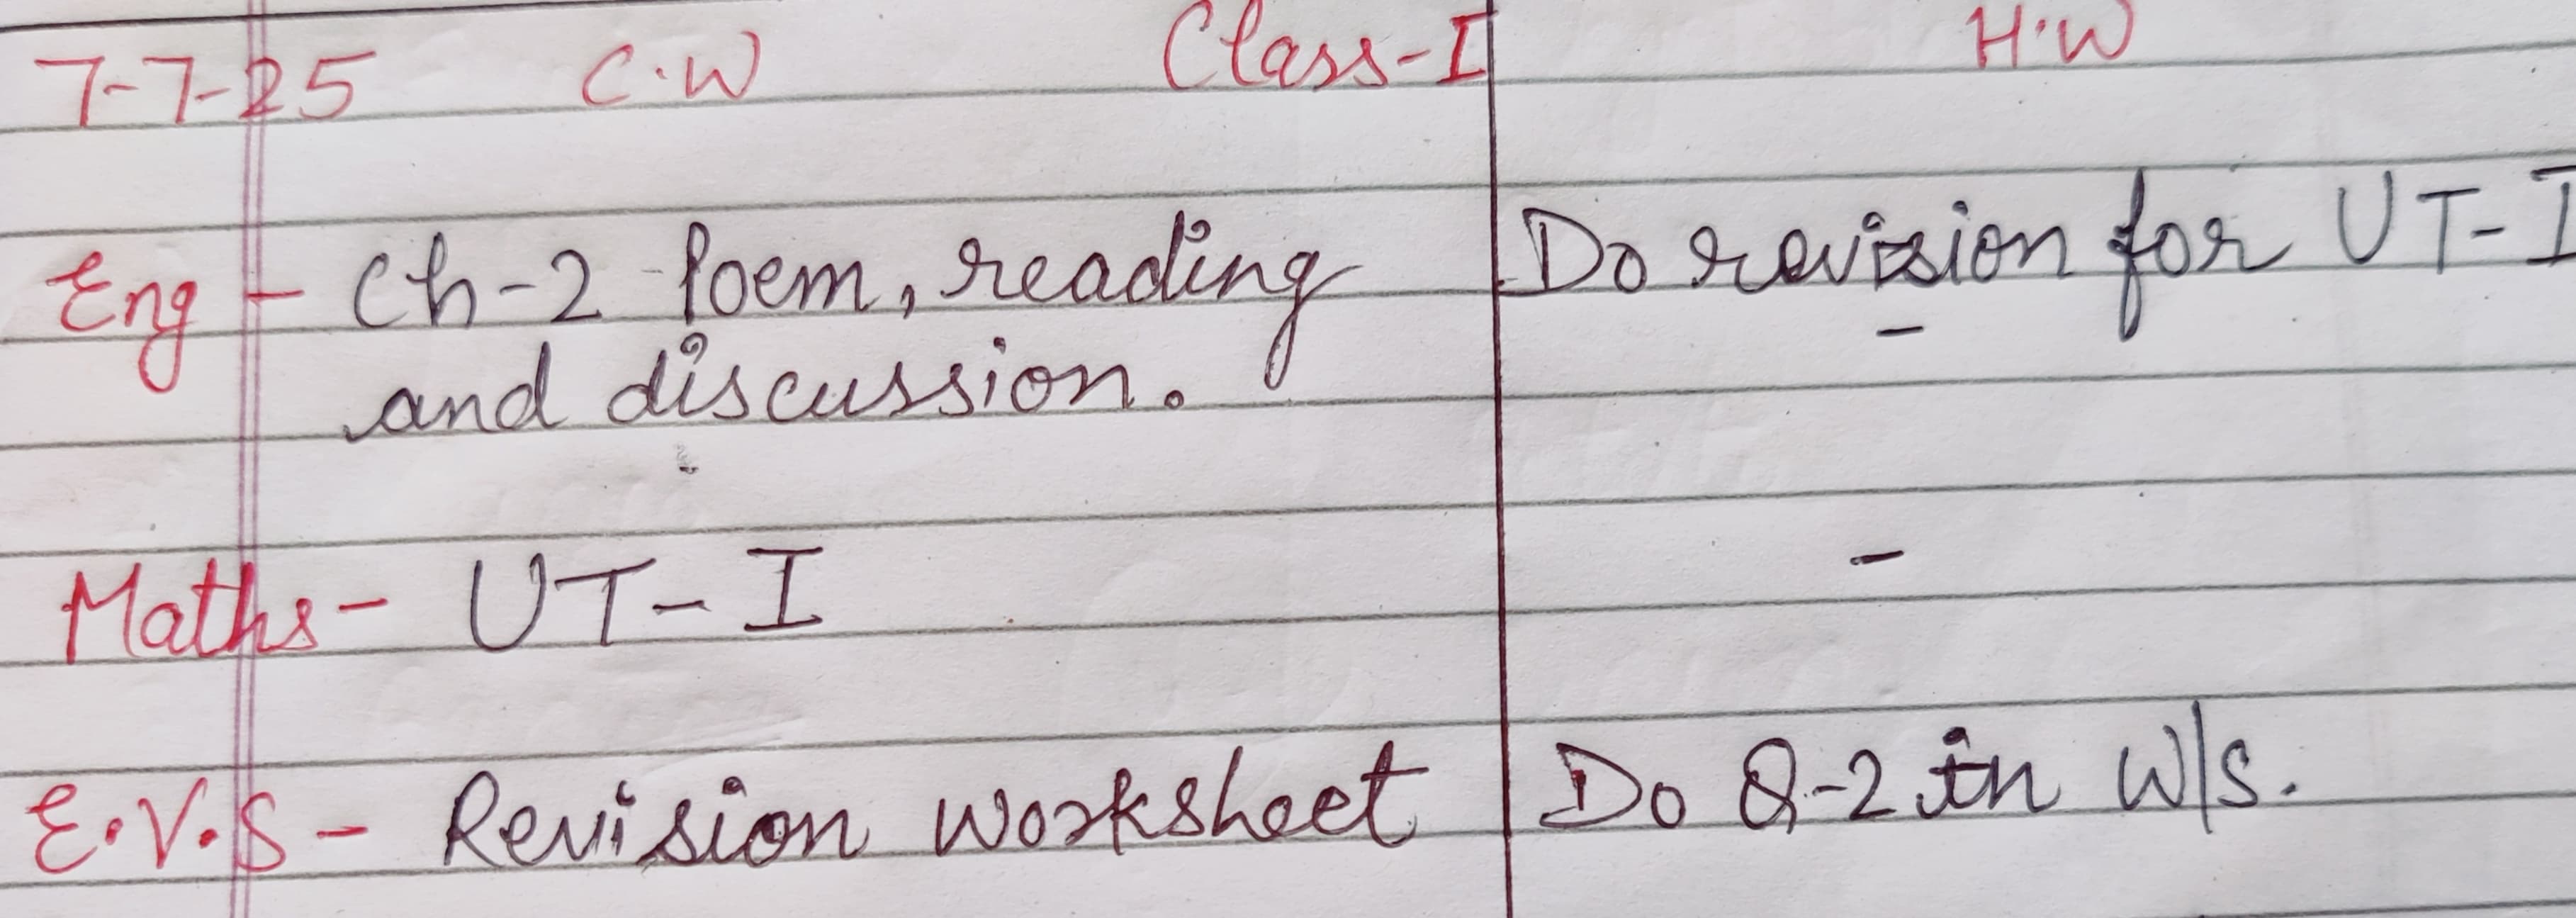 7-7-25 C.W Class-I H.W
Eng - Ch-2 Poem, reading Do revision for UT-I
and discussion. -
Maths - UT-I -
E.V.S - Revision worksheet Do Q-2 in W/s.